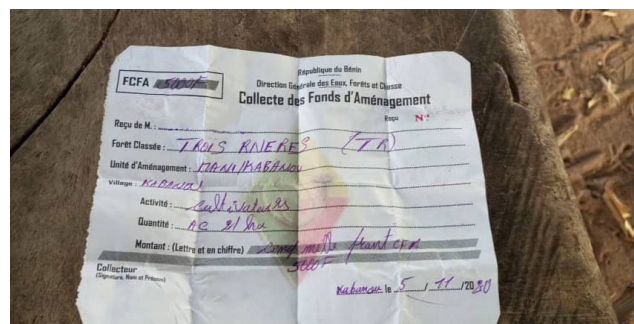 République du Bénin
FCFA 5000F
Direction Générale des Eaux, Forêts et Chasse
Collecte des Fonds d'Aménagement
Reçu N°
Reçu de M. :
Forêt Classée : TROIS RIVIERES (TR)
Unité d'Aménagement : MANI/KABANOU
Village : KABANOU
Activité :
Quantité :
Montant : (Lettre et en chiffre) Cinq mille francs CFA
5000F
Collecteur
(Signature, Nom et Prénom)
Kabanou le 5 / 11 /2020